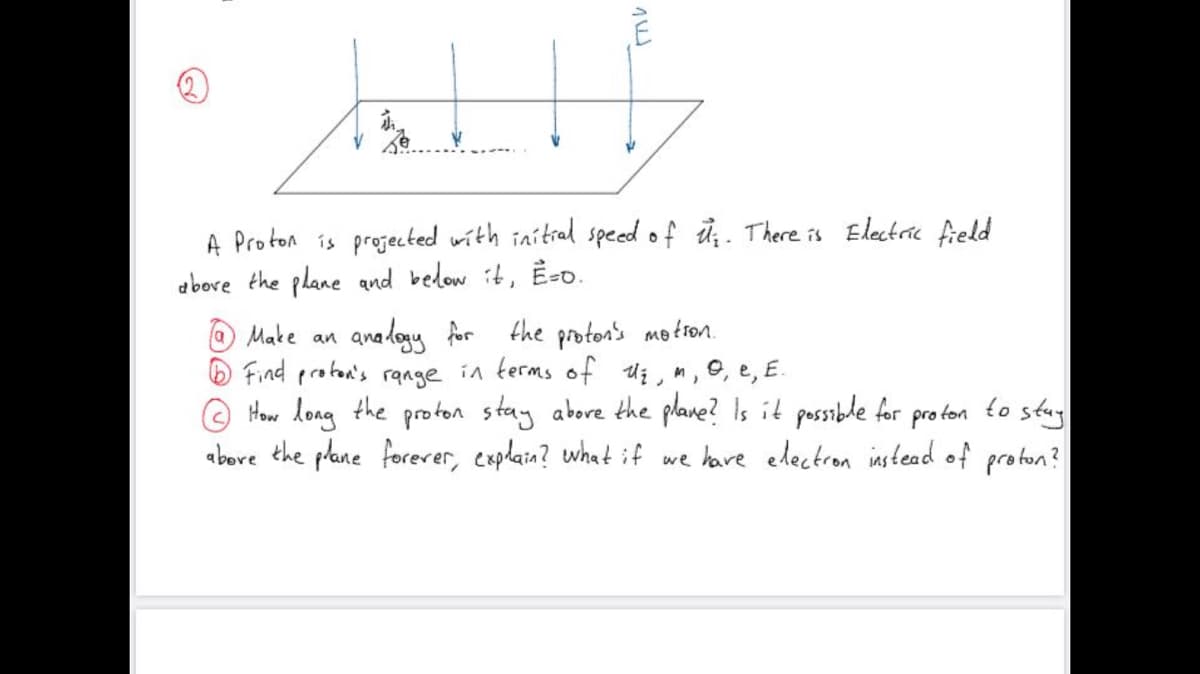 E⃗
②
u⃗ᵢ
θ
A Proton is projected with initial speed of u⃗ᵢ. There is Electric field
above the plane and below it, E⃗=0.
ⓐ Make an analogy for the proton's motion.
ⓑ Find proton's range in terms of uᵢ, m, θ, e, E.
ⓒ How long the proton stay above the plane? Is it possible for proton to stay
above the plane forever, explain? What if we have electron instead of proton?